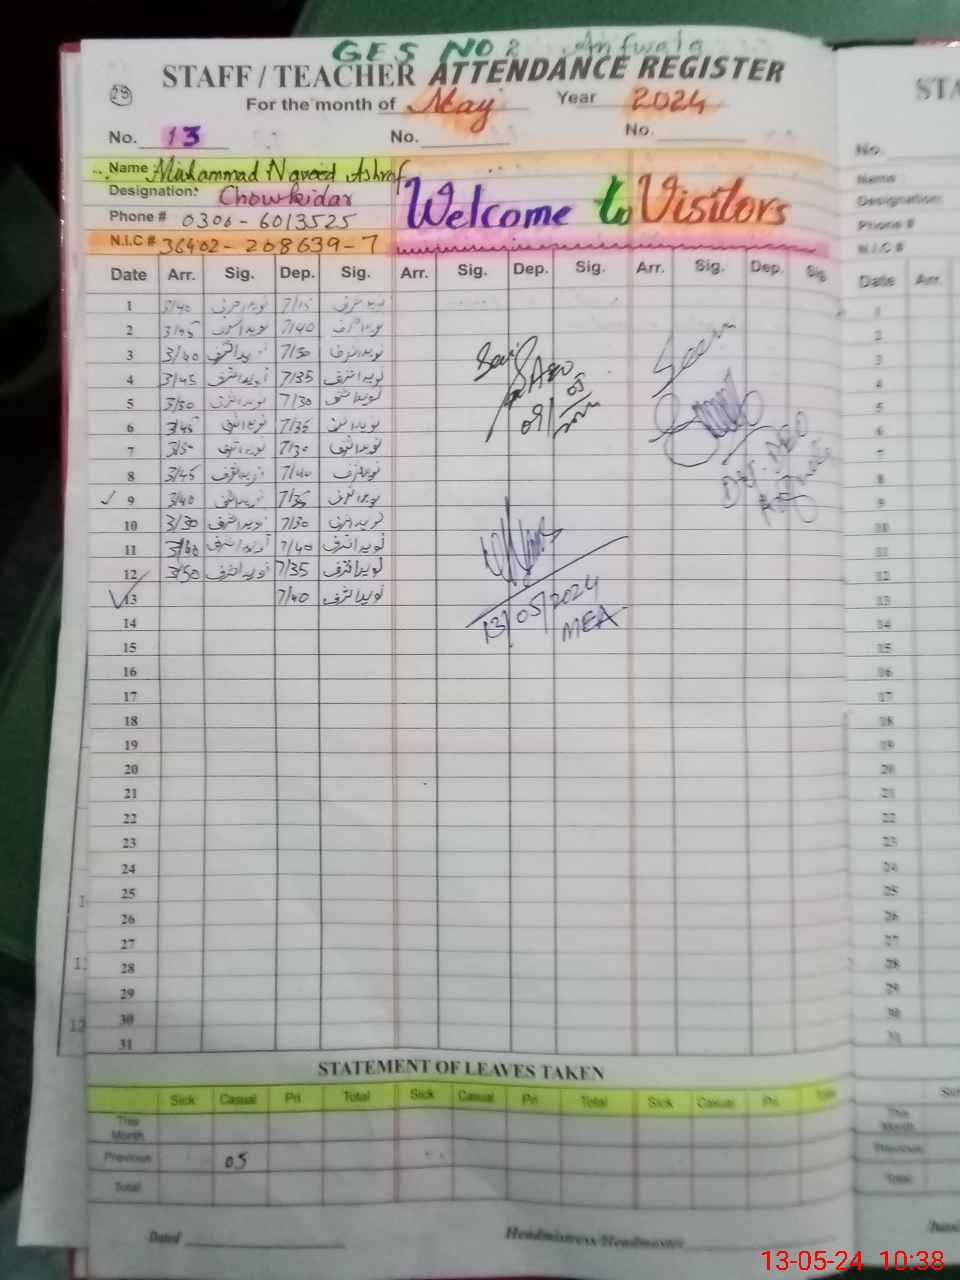 GES NO 2 Arifwala
STAFF / TEACHER ATTENDANCE REGISTER
29
For the month of May Year 2024
No. 13 No. No.
Name Muhammad Naveed Ashraf
Designation: Chowkidar
Welcome to Visitors
Phone # 0306-6013525
N.I.C # 36402-208639-7
Date Arr. Sig. Dep. Sig. Arr. Sig. Dep. Sig. Arr. Sig. Dep. Sig
1 3/40 نوید اشرف 7/15 نوید اشرف
2 3/45 نوید اشرف 7/40 نوید اشرف
3 3/40 نوید اشرف 7/50 نوید اشرف
4 3/45 نوید اشرف 7/35 نوید اشرف
5 3/50 نوید اشرف 7/30 نوید اشرف
6 3/45 نوید اشرف 7/35 نوید اشرف
7 3/50 نوید اشرف 7/30 نوید اشرف
8 3/45 نوید اشرف 7/40 نوید اشرف
9 3/40 نوید اشرف 7/35 نوید اشرف
10 3/30 نوید اشرف 7/30 نوید اشرف
11 3/40 نوید اشرف 7/40 نوید اشرف
12 3/50 نوید اشرف 7/35 نوید اشرف
13 7/40 نوید اشرف
Seen
AEO
09/05
Seen
13/05/2024
MEA
14
15
16
17
18
19
20
21
22
23
24
25
26
27
28
29
30
31
STATEMENT OF LEAVES TAKEN
Sick Casual Pri Total Sick Casual Pri Total Sick Casual Pri Total
This Month
Previous 05
Total
Dated Headmistress/Headmaster
No.
Name
Designation:
Phone #
N.I.C #
Date Arr.
1
2
3
4
5
6
7
8
9
10
11
12
13
14
15
16
17
18
19
20
21
22
23
24
25
26
27
28
29
30
31
This Month
Previous
Total
13-05-24 10:38